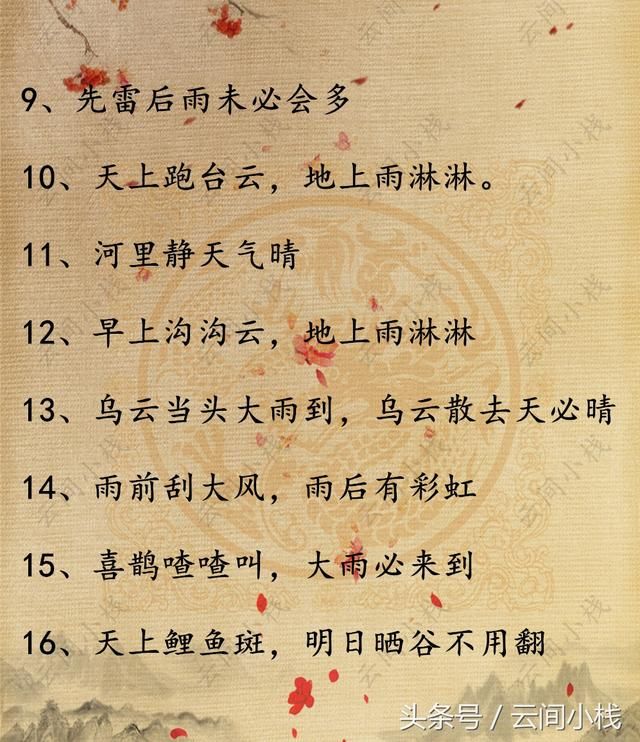 9、先雷后雨未必会多
10、天上跑台云，地上雨淋淋。
11、河里静天气晴
12、早上沟沟云，地上雨淋淋
13、乌云当头大雨到，乌云散去天必晴
14、雨前刮大风，雨后有彩虹
15、喜鹊喳喳叫，大雨必来到
16、天上鲤鱼斑，明日晒谷不用翻
头条号 / 云间小栈
云间小栈